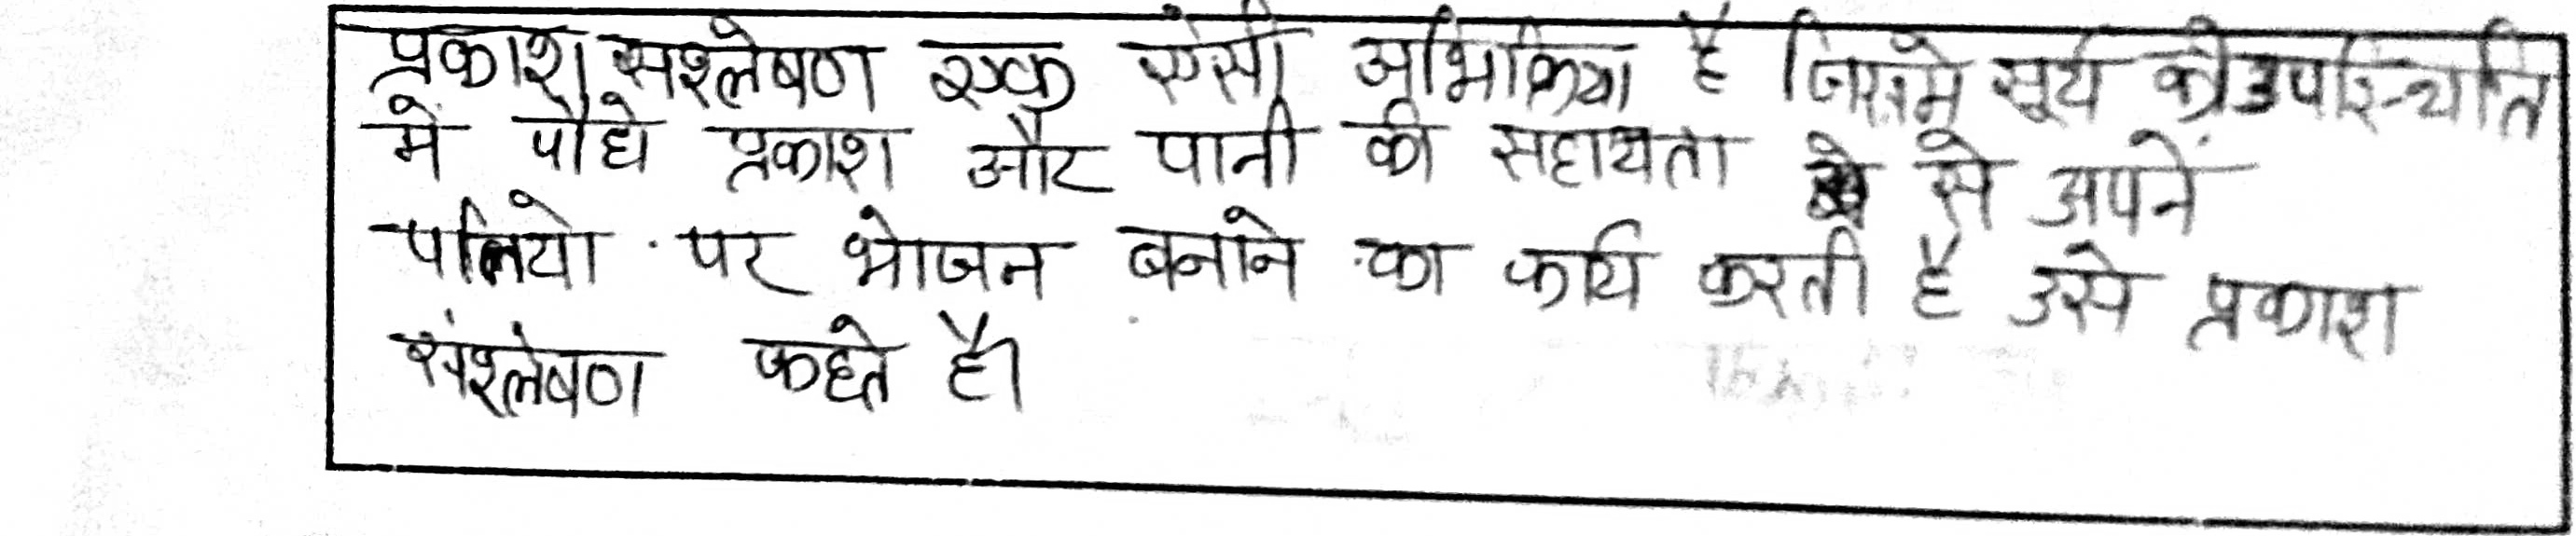 प्रकाश सश्लेषण एक ऐसी अभिक्रिया है जिसमे सूर्य की उपस्थिति
में पौधे प्रकाश और पानी की सहायता से अपनें
पत्तियो पर भोजन बनाने का कार्य करती है उसे प्रकाश
संश्लेषण कहते है।